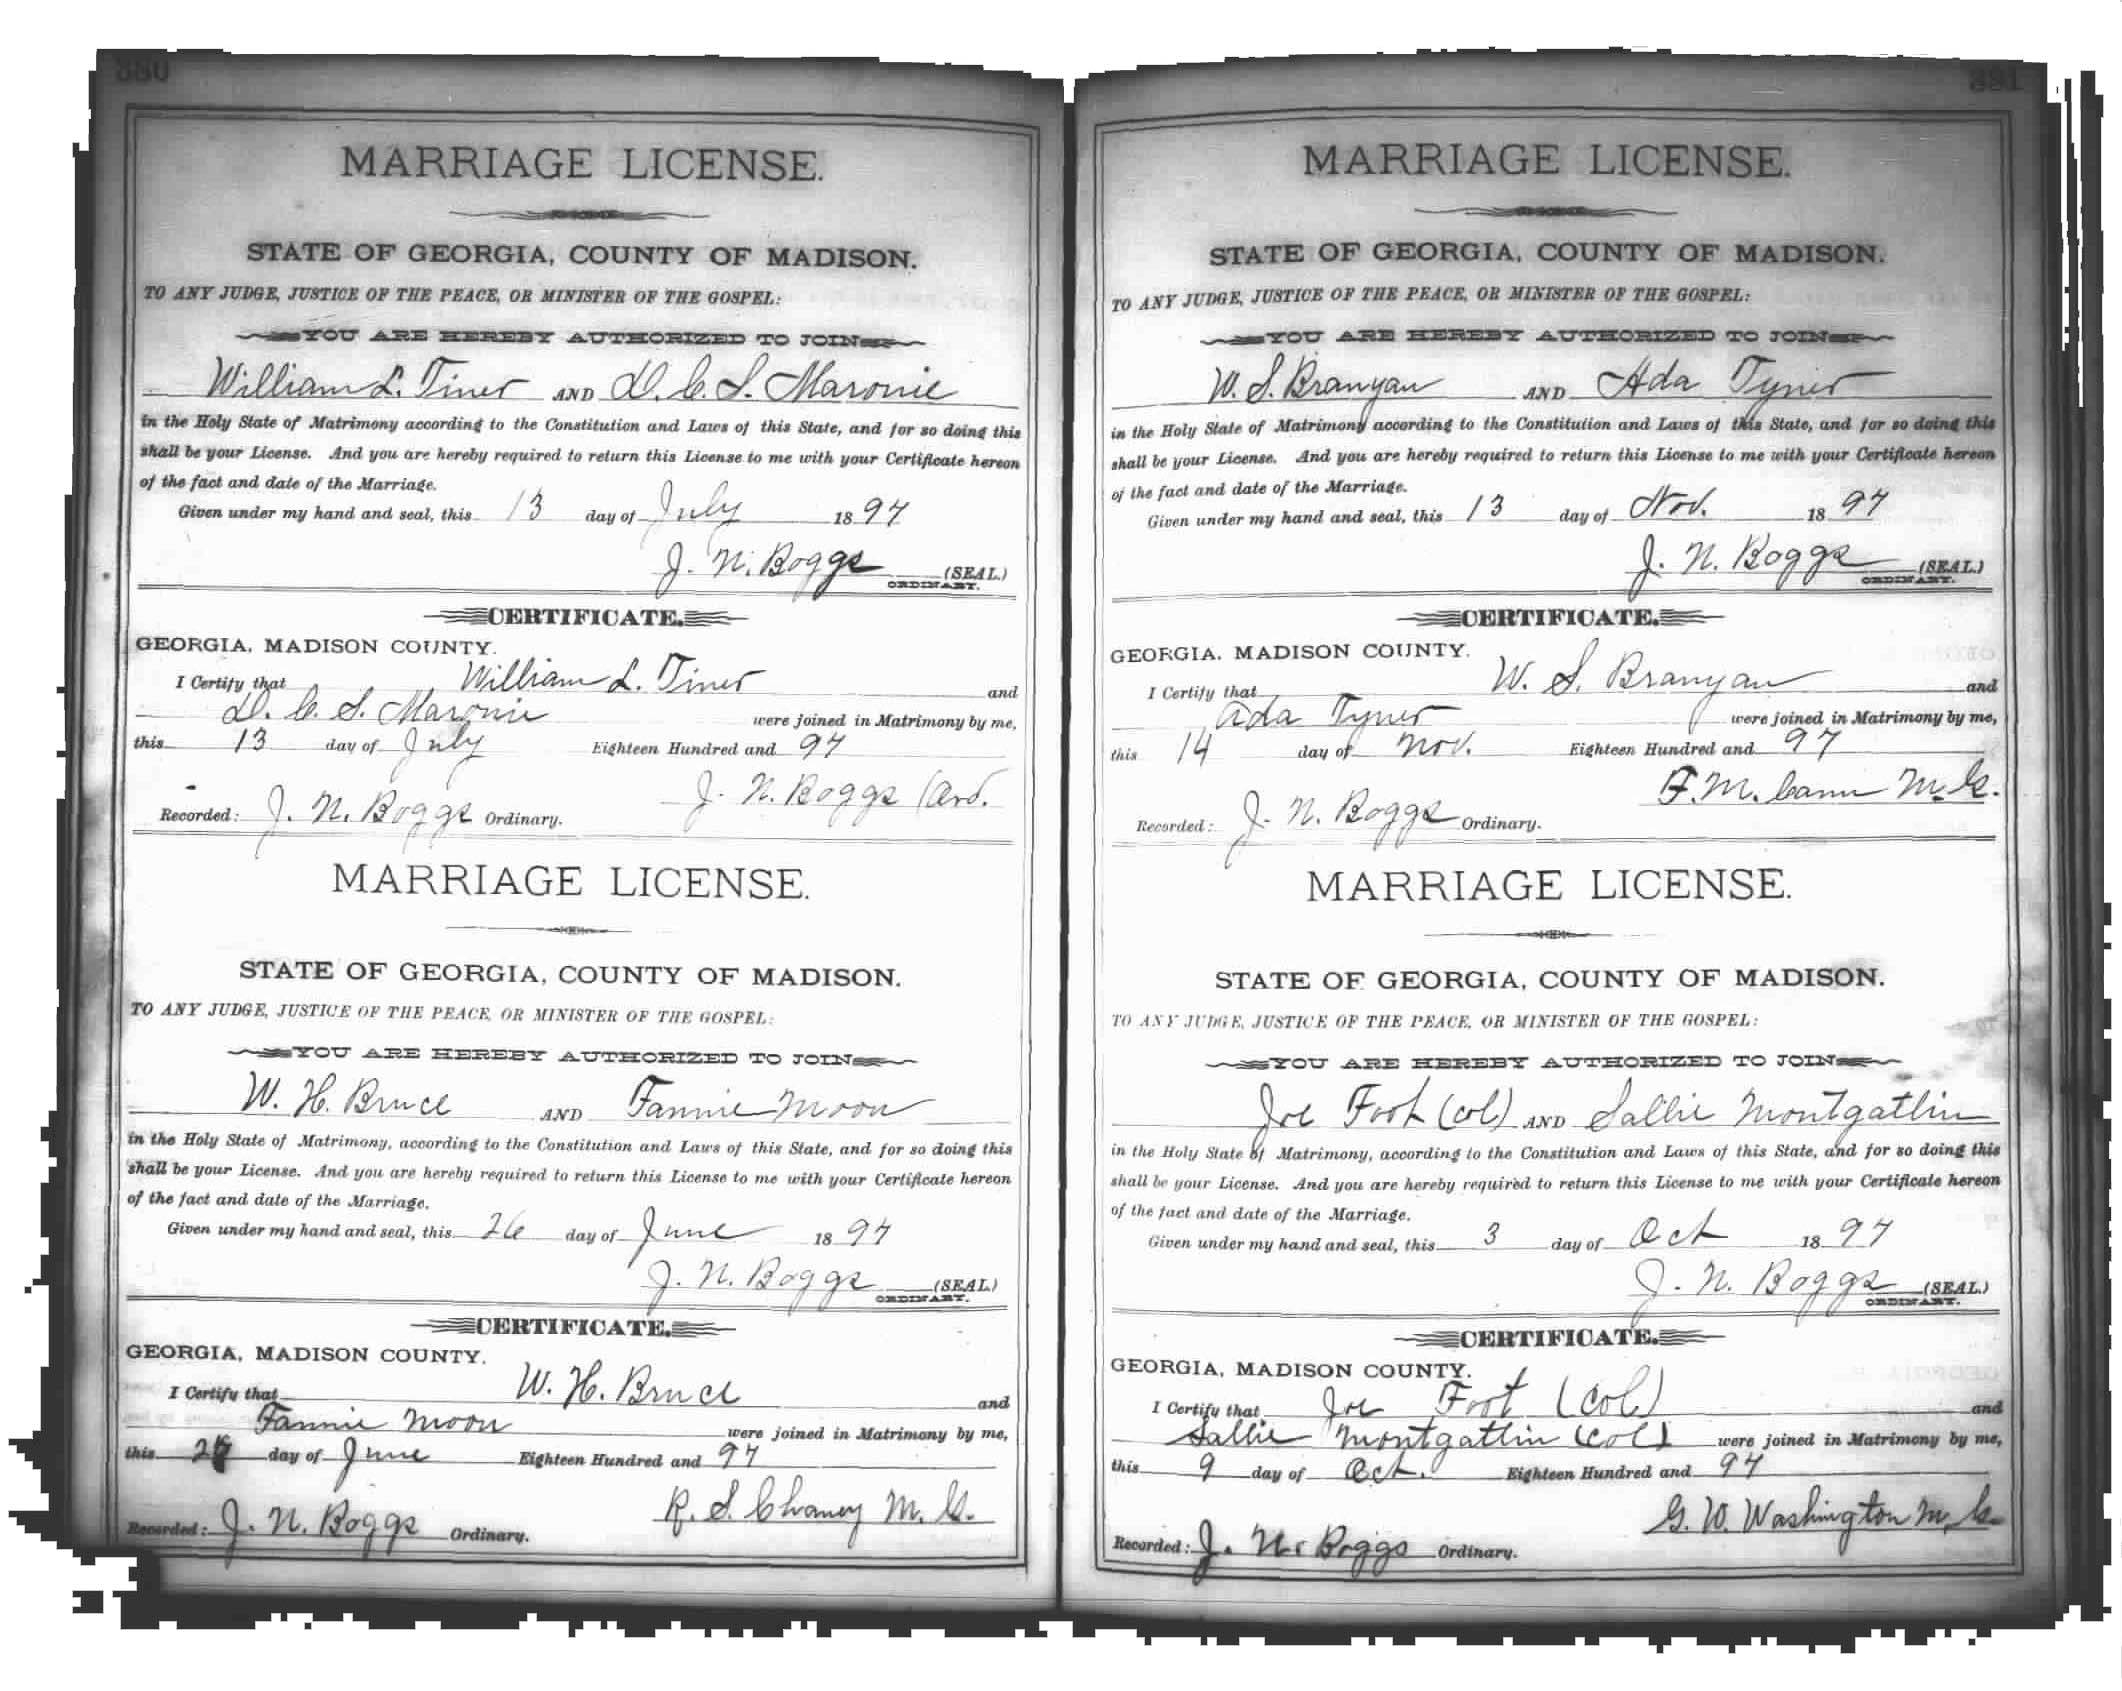 380
MARRIAGE LICENSE.
STATE OF GEORGIA, COUNTY OF MADISON.
TO ANY JUDGE, JUSTICE OF THE PEACE, OR MINISTER OF THE GOSPEL:
YOU ARE HEREBY AUTHORIZED TO JOIN
William L. Tiner AND D. C. S. Maronie
in the Holy State of Matrimony according to the Constitution and Laws of this State, and for so doing this
shall be your License. And you are hereby required to return this License to me with your Certificate hereon
of the fact and date of the Marriage.
Given under my hand and seal, this 13 day of July 1897
J. N. Boggs (SEAL.)
ORDINARY.
CERTIFICATE.
GEORGIA, MADISON COUNTY.
I Certify that William L. Tiner and
D. C. S. Maronie were joined in Matrimony by me,
this 13 day of July Eighteen Hundred and 97
J. N. Boggs Ord.
Recorded: J. N. Boggs Ordinary.
MARRIAGE LICENSE.
STATE OF GEORGIA, COUNTY OF MADISON.
TO ANY JUDGE, JUSTICE OF THE PEACE, OR MINISTER OF THE GOSPEL:
YOU ARE HEREBY AUTHORIZED TO JOIN
W. H. Bruce AND Fannie Moon
in the Holy State of Matrimony, according to the Constitution and Laws of this State, and for so doing this
shall be your License. And you are hereby required to return this License to me with your Certificate hereon
of the fact and date of the Marriage.
Given under my hand and seal, this 26 day of June 1897
J. N. Boggs (SEAL.)
ORDINARY.
CERTIFICATE.
GEORGIA, MADISON COUNTY.
I Certify that W. H. Bruce and
Fannie Moon were joined in Matrimony by me,
this day of June Eighteen Hundred and 97
R. S. Chaney M. G.
Recorded: J. N. Boggs Ordinary.
381
MARRIAGE LICENSE.
STATE OF GEORGIA, COUNTY OF MADISON.
TO ANY JUDGE, JUSTICE OF THE PEACE, OR MINISTER OF THE GOSPEL:
YOU ARE HEREBY AUTHORIZED TO JOIN
W. S. Branyan AND Ada Tyner
in the Holy State of Matrimony according to the Constitution and Laws of this State, and for so doing this
shall be your License. And you are hereby required to return this License to me with your Certificate hereon
of the fact and date of the Marriage.
Given under my hand and seal, this 13 day of Nov. 1897
J. N. Boggs (SEAL.)
ORDINARY.
CERTIFICATE.
GEORGIA, MADISON COUNTY.
I Certify that W. S. Branyan and
Ada Tyner were joined in Matrimony by me,
this 14 day of Nov. Eighteen Hundred and 97
F. M. Cann M. G.
Recorded: J. N. Boggs Ordinary.
MARRIAGE LICENSE.
STATE OF GEORGIA, COUNTY OF MADISON.
TO ANY JUDGE, JUSTICE OF THE PEACE, OR MINISTER OF THE GOSPEL:
YOU ARE HEREBY AUTHORIZED TO JOIN
Joe Foot (col) AND Sallie Montgatlin
in the Holy State of Matrimony, according to the Constitution and Laws of this State, and for so doing this
shall be your License. And you are hereby required to return this License to me with your Certificate hereon
of the fact and date of the Marriage.
Given under my hand and seal, this 3 day of Oct 1897
J. N. Boggs (SEAL.)
ORDINARY.
CERTIFICATE.
GEORGIA, MADISON COUNTY.
I Certify that Joe Foot (Col) and
Sallie Montgatlin (Col) were joined in Matrimony by me,
this 9 day of Oct. Eighteen Hundred and 97
G. W. Washington M. G.
Recorded: J. N. Boggs Ordinary.